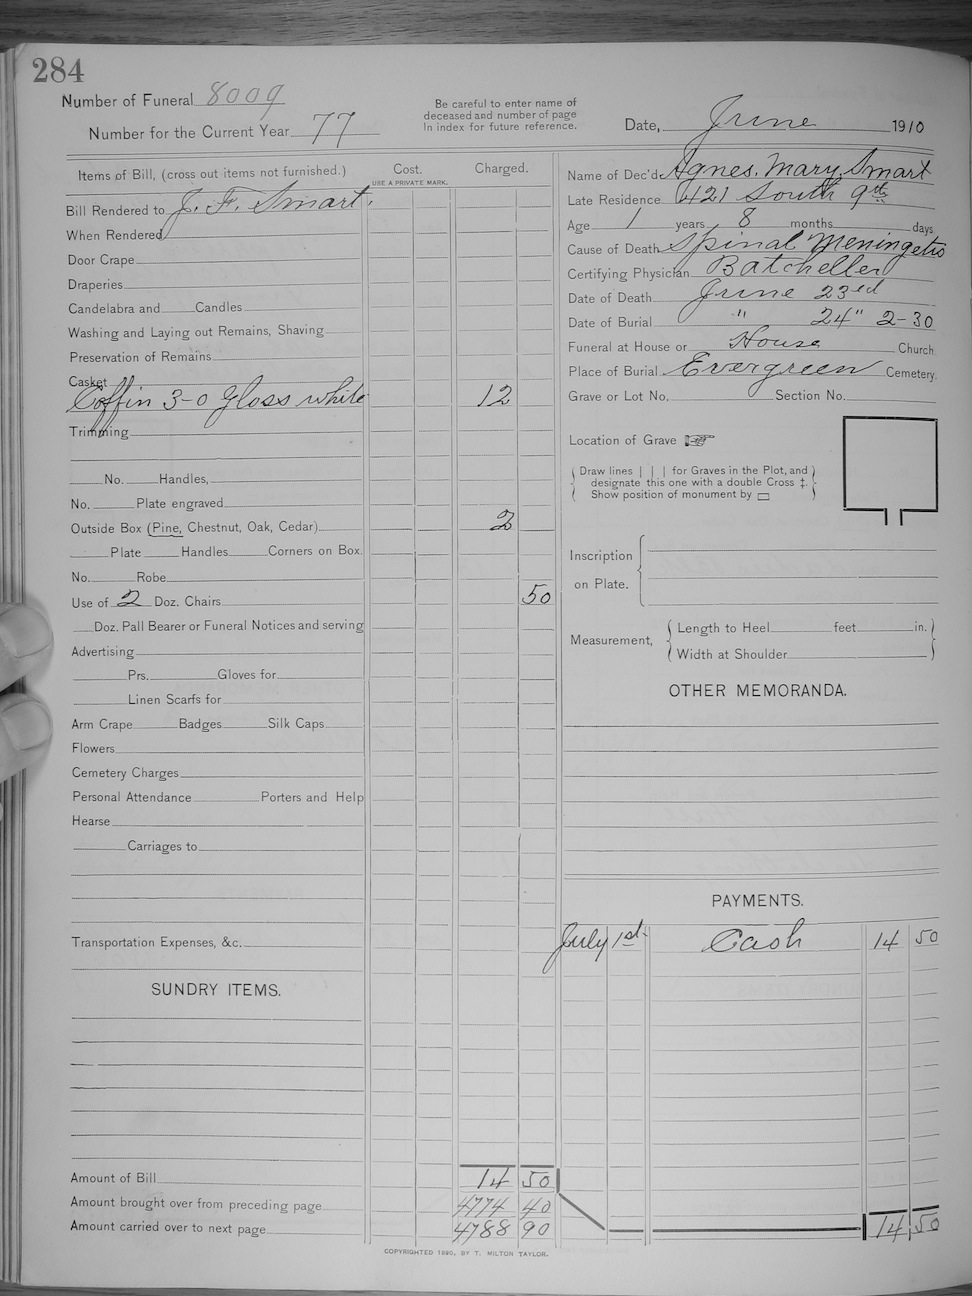 284
Number of Funeral 8009
Number for the Current Year 77
Be careful to enter name of
deceased and number of page
In index for future reference.
Date, June 1910
Items of Bill, (cross out items not furnished.)
Cost.
USE A PRIVATE MARK.
Charged.
Bill Rendered to J. F. Smart.
When Rendered
Door Crape
Draperies
Candelabra and Candles
Washing and Laying out Remains, Shaving
Preservation of Remains
Casket
Coffin 3-0 Gloss white 12
Trimming
No. Handles,
No. Plate engraved
Outside Box (Pine, Chestnut, Oak, Cedar) 2
Plate Handles Corners on Box.
No. Robe
Use of 2 Doz. Chairs 50
Doz. Pall Bearer or Funeral Notices and serving
Advertising
Prs. Gloves for
Linen Scarfs for
Arm Crape Badges Silk Caps
Flowers
Cemetery Charges
Personal Attendance Porters and Help
Hearse
Carriages to
Transportation Expenses, &c.
SUNDRY ITEMS.
Amount of Bill 14 50
Amount brought over from preceding page 4774 40
Amount carried over to next page 4788 90
Name of Dec'd Agnes Mary Smart
Late Residence 421 South 9th
Age 1 years 8 months days
Cause of Death Spinal Meningetis
Certifying Physician Batcheller
Date of Death June 23rd
Date of Burial " 24" 2-30
Funeral at House or House Church
Place of Burial Evergreen Cemetery.
Grave or Lot No. Section No.
Location of Grave ☞
Draw lines | | | for Graves in the Plot, and
designate this one with a double Cross ‡.
Show position of monument by ▭
Inscription
on Plate.
Measurement,
Length to Heel feet in.
Width at Shoulder
OTHER MEMORANDA.
PAYMENTS.
July 1st Cash 14 50
14 50
COPYRIGHTED 1890, BY T. MILTON TAYLOR.